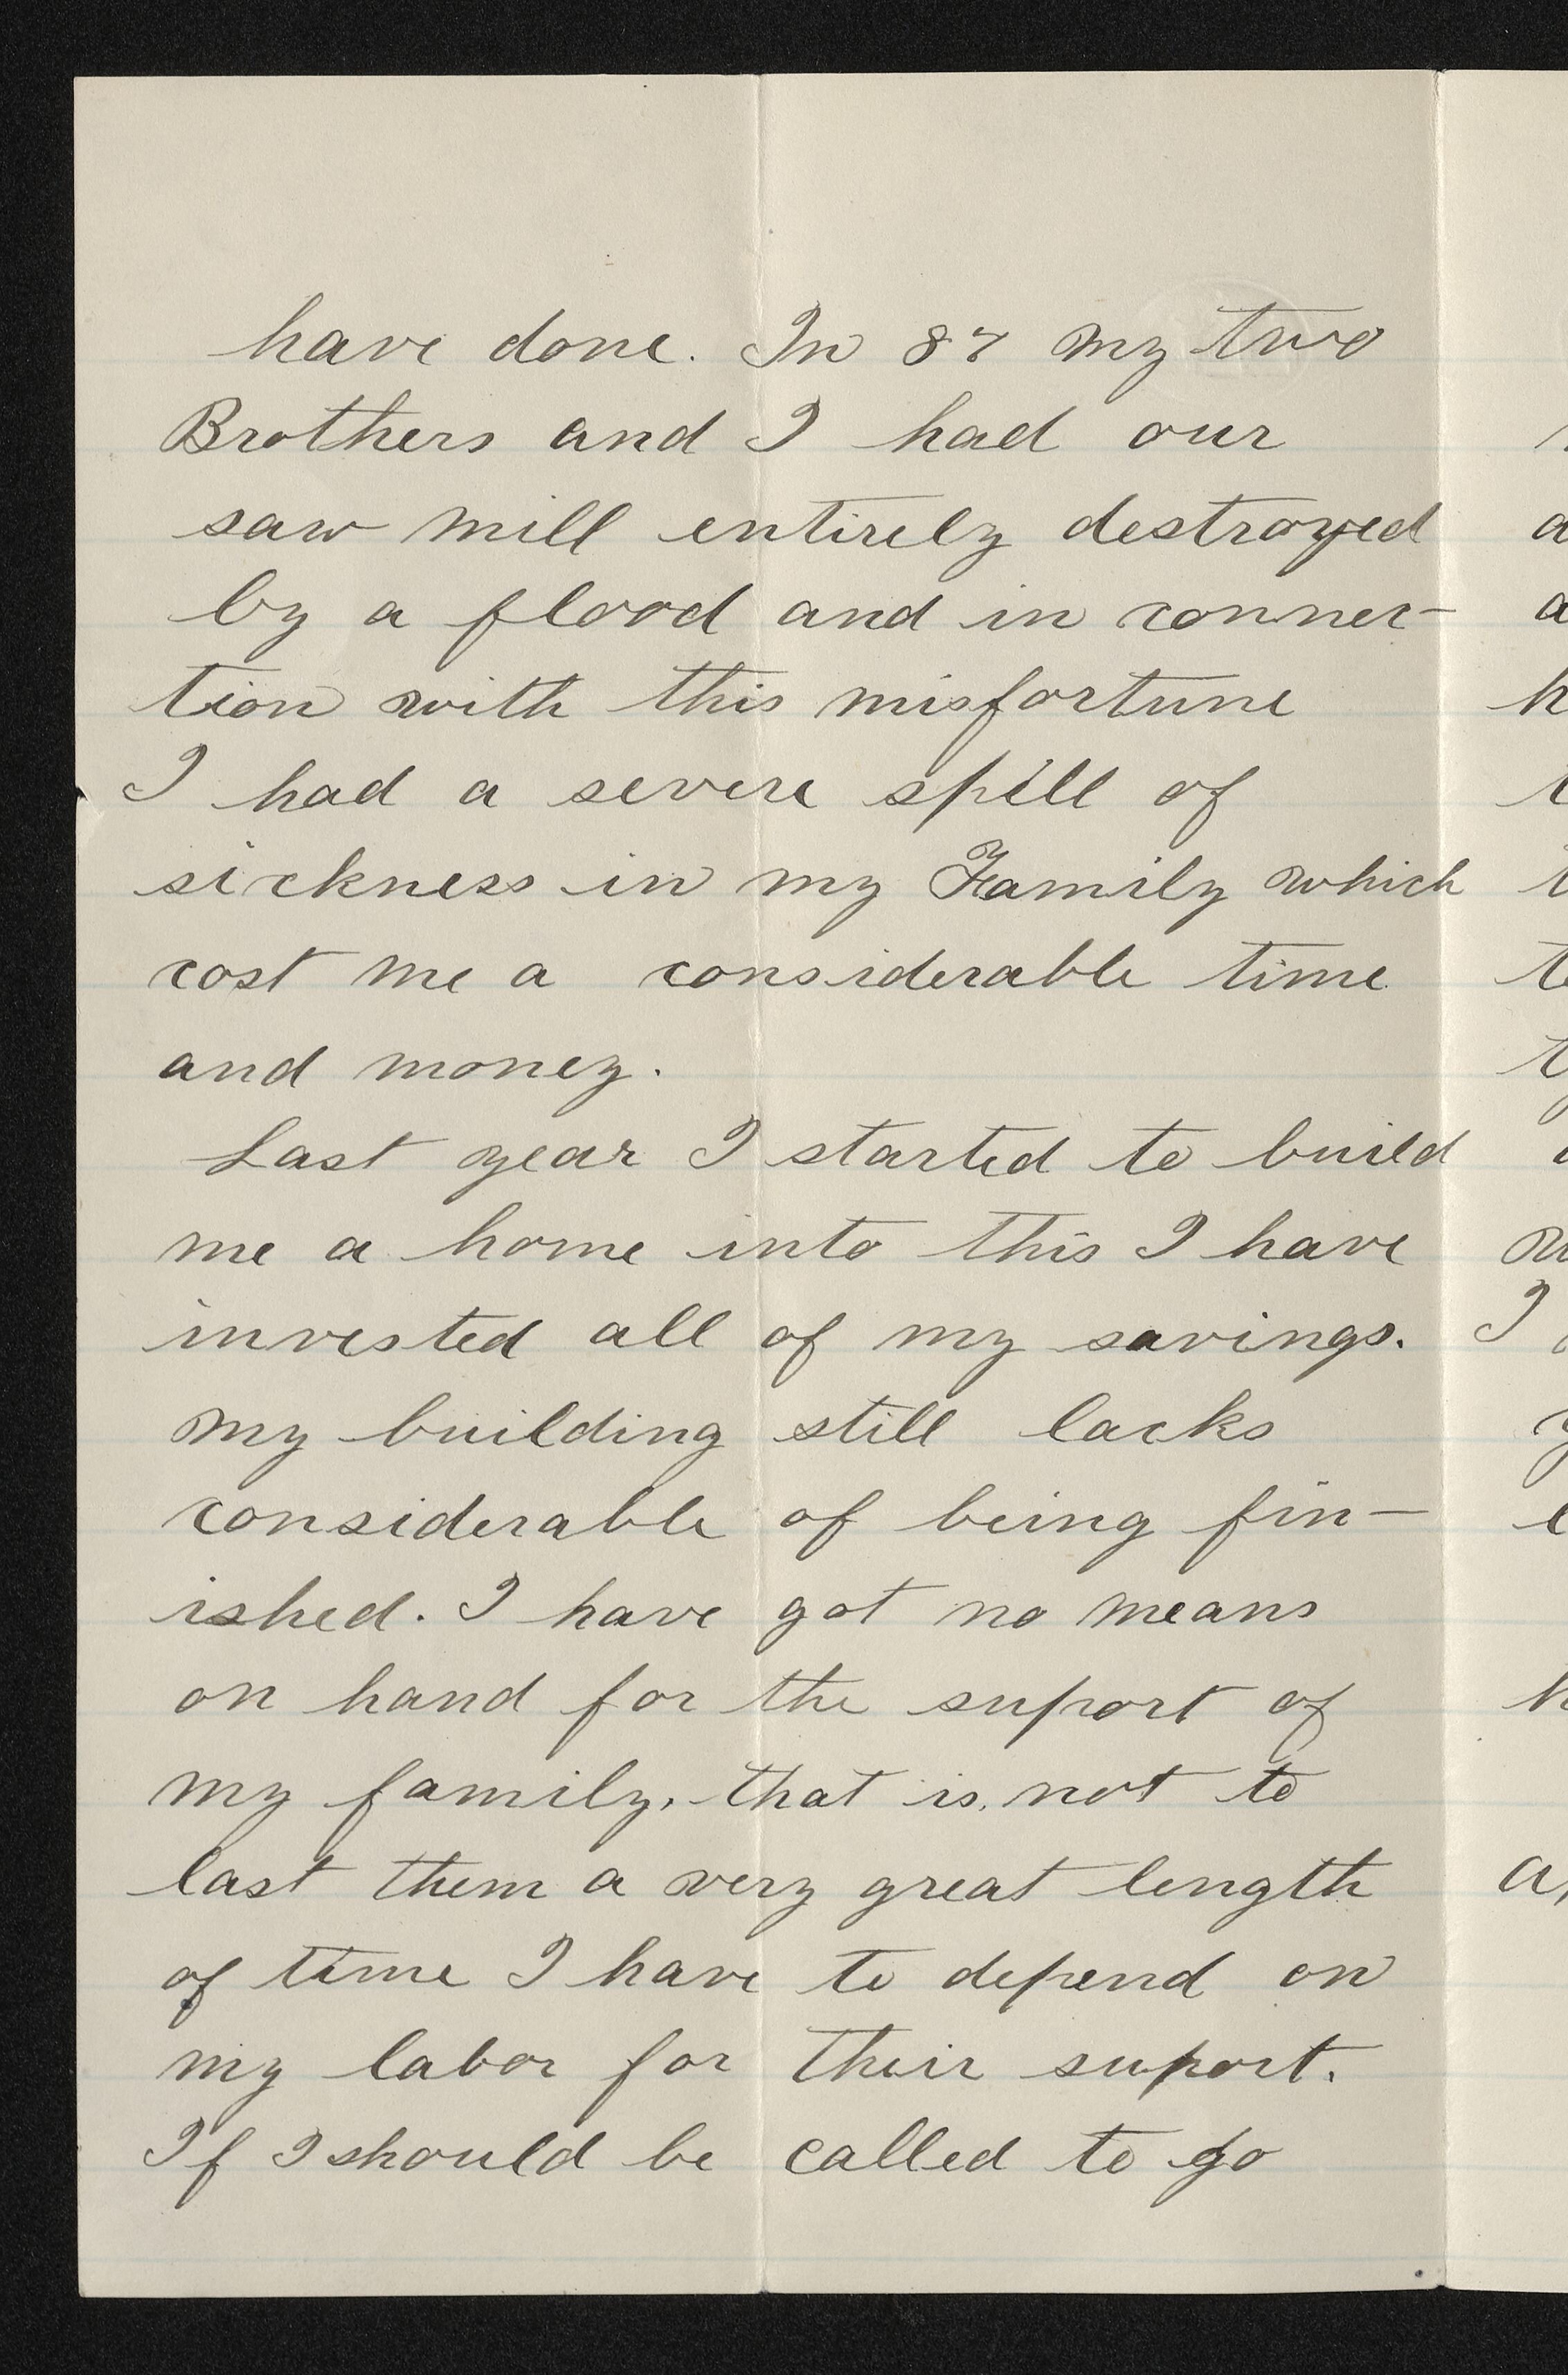 have done. In 87 my two
Brothers and I had our
saw mill entirely destroyed
by a flood and in connec-
tion with this misfortune
I had a severe spill of
sickness in my Family which
cost me a considerable time
and money.
Last year I started to build
me a home into this I have
invested all of my savings.
my building still lacks
considerable of being fin-
ished. I have got no means
on hand for the suport of
my family, that is, not to
last them a very great length
of time I have to depend on
my labor for their suport.
If I should be called to go